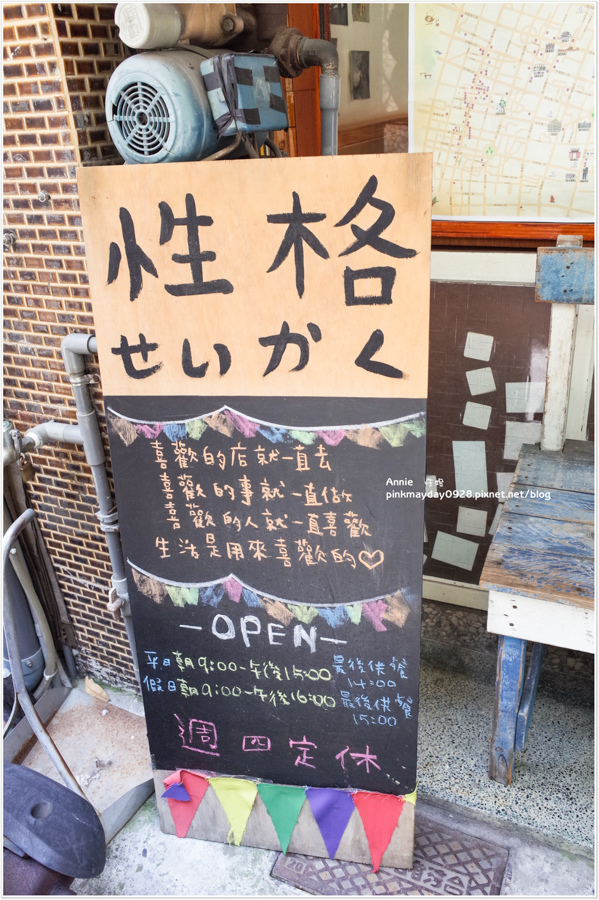 性格
せいかく
喜歡的店就一直去
喜歡的事就一直做
喜歡的人就一直喜歡
生活是用來喜歡的♡
-OPEN-
平日朝9:00-午後15:00 最後供餐
14:00
假日朝9:00-午後16:00 最後供餐
15:00
週四定休
Annie
pinkmayday0928.pixnet.net/blog